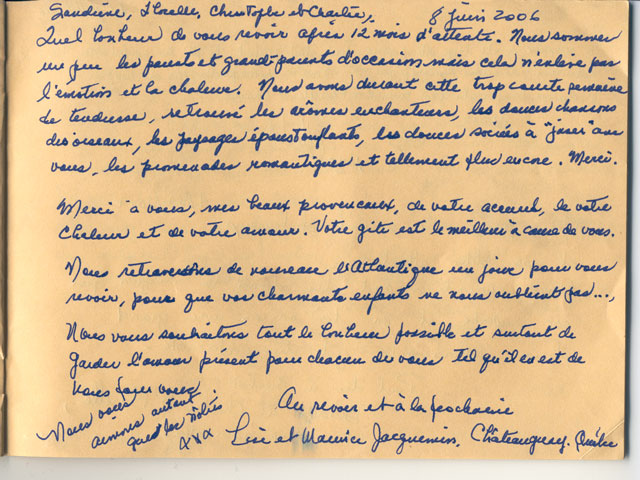 Sandrine, Florelle, Christophe et Charlie, 8 juin 2006
Quel bonheur de vous revoir après 12 mois d'attente. Nous sommes
un peu les parents et grand-parents d'occasion mais cela n'enlève pas
l'émotion et la chaleur. Nous avons durant cette trop courte semaine
de tendresse, retrouvé les arômes enchanteurs, les douces chansons
des oiseaux, les paysages époustouflants, les douces soirées à "jaser" avec
vous, les promenades romantiques et tellement plus encore. Merci.
Merci à vous, mes beaux provencaux, de votre accueil, de votre
chaleur et de votre amour. Votre gite est le meilleur à cause de vous.
Nous retraverserons de nouveau l'Atlantique un jour pour vous
revoir, pour que vos charmants enfants ne nous oublient pas...,
Nous vous souhaitons tout le bonheur possible et surtout de
garder l'amour présent pour chacun de vous tel qu'il en est de
nous pour vous
Nous vous
aimons autant
que les nôtres
xxx
Au revoir et à la prochaine
Lise et Maurice Jacquemin, Châteauguay, Québec